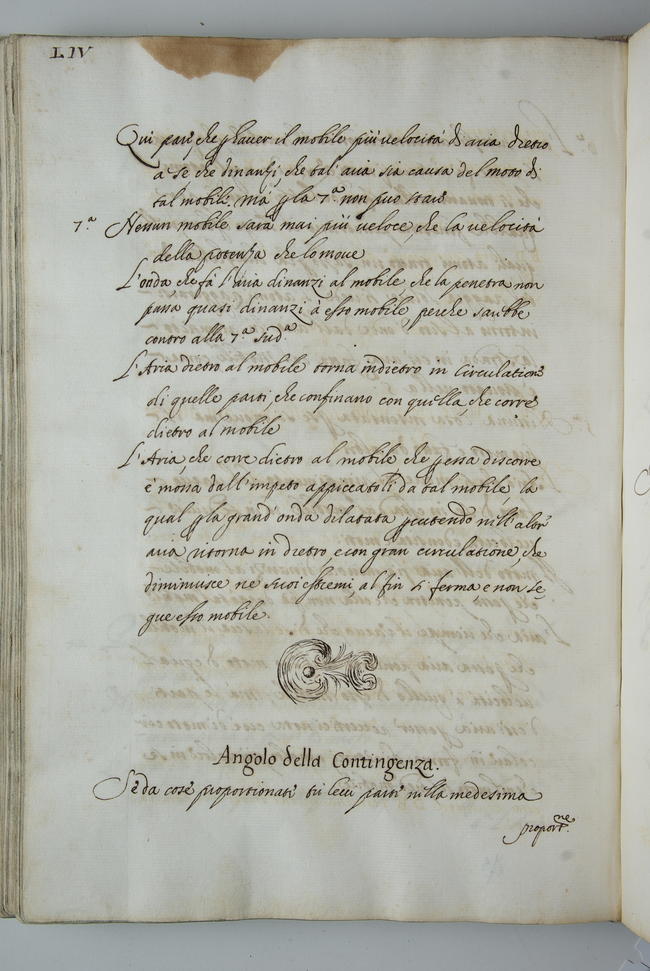 LIV
Qui par' che p haver il mobile più velocità di aria dietro
a se che dinanzi, che tal' aria sia causa del moto di
tal mobile. mà p la 7.ª non può stare
7.ª Nessun mobile sarà mai più veloce, che la velocità
della potenza che lo move
L'onda, che fà l'aria dinanzi al mobile, che la penetra non
passa quasi dinanzi à esso mobile, perche sarebbe
contro alla 7.ª sud.ª
L'Aria dietro al mobile torna indietro in circulatione
di quelle parti, che confinano con quella, che corre
dietro al mobile
L'Aria, che corre dietro al mobile, che p essa discorre
è mossa dall'impeto appiccatoli da tal mobile, la
qual p la grand'onda dilatata pcutendo nell'altr'
aria ritorna in dietro, e con gran circulatione, che
diminuisce ne suoi estremi, al fin si ferma, e non se,
gue esso mobile.
Angolo della Contingenza.
Se da cose proportionate parti nella medesima
proport.ne